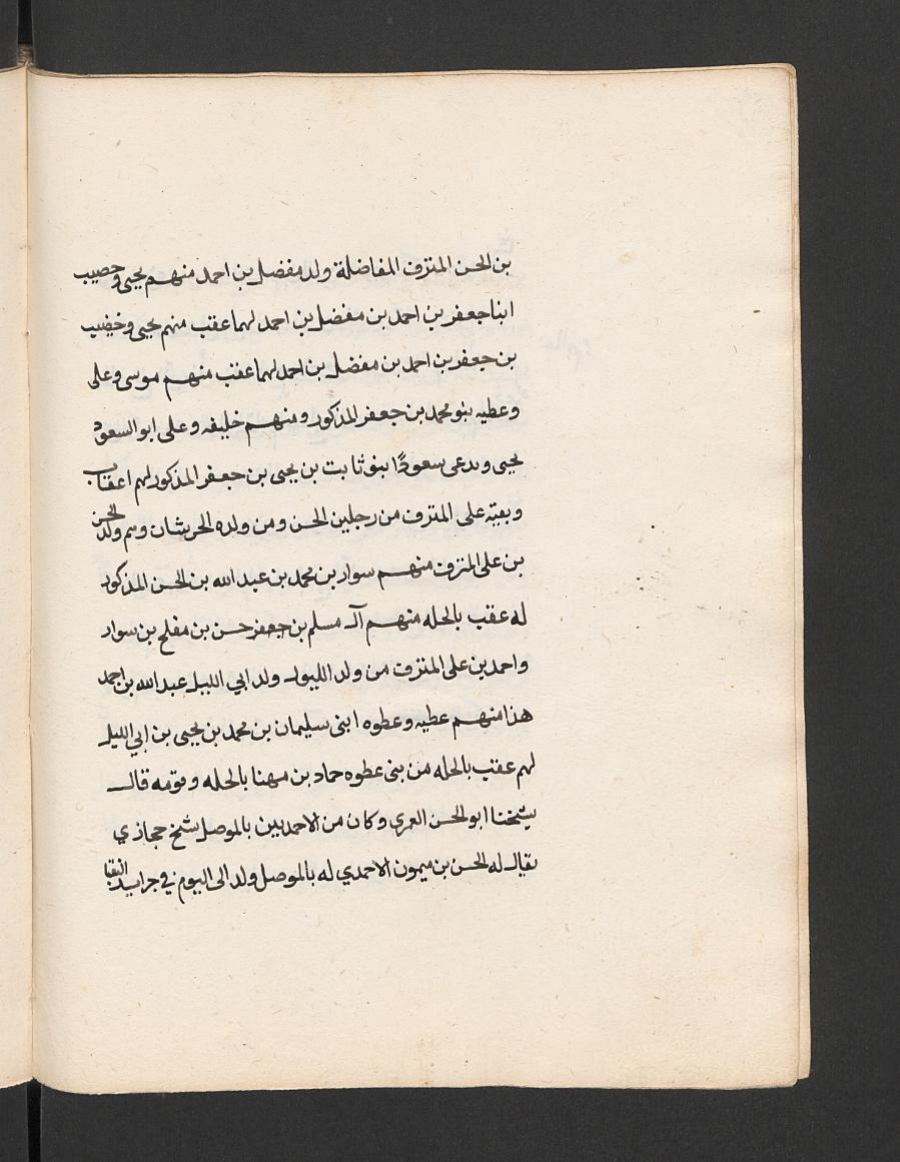 بن الحسن المترف المفاضلة ولد مفضل بن احمد منهم يحيى وخصيب
ابنا جعفر بن احمد بن مفضل بن احمد لهما عقب منهم يحيى وخضيب
بن جعفر بن احمد بن مفضل بن احمد لهما عقب منهم موسى وعلى
وعطيه بنو محمد بن جعفر المذكور ومنهم خليفه وعلى ابو السعود
يحيى ويدعى سعودًا بنو ثابت بن يحيى بن جعفر المذكور لهم اعقاب
وبقية على المترف من رجلين الحسن ومن ولده الحريشان وهم ولد الحسن
بن على المترف منهم سوار بن محمد بن عبد الله بن الحسن المذكور
له عقب بالحله منهم آل مسلم بن جعفر حسن بن مفلح بن سوار
واحمد بن على المترف من ولد الليول ولد ابي الليل عبد الله بن احمد
هذا منهم عطيه وعطوه ابنى سليمان بن محمد بن يحيى بن ابي الليل
لهم عقب بالحله من بنى عطوه حماد بن مهنا بالحله وقومه قال
شيخنا ابو الحسن العمري وكان من الاحمديين بالموصل شيخ حجازي
يقال له الحسن بن ميمون الاحمدي له بالموصل ولد الى اليوم في جرايد النقبا